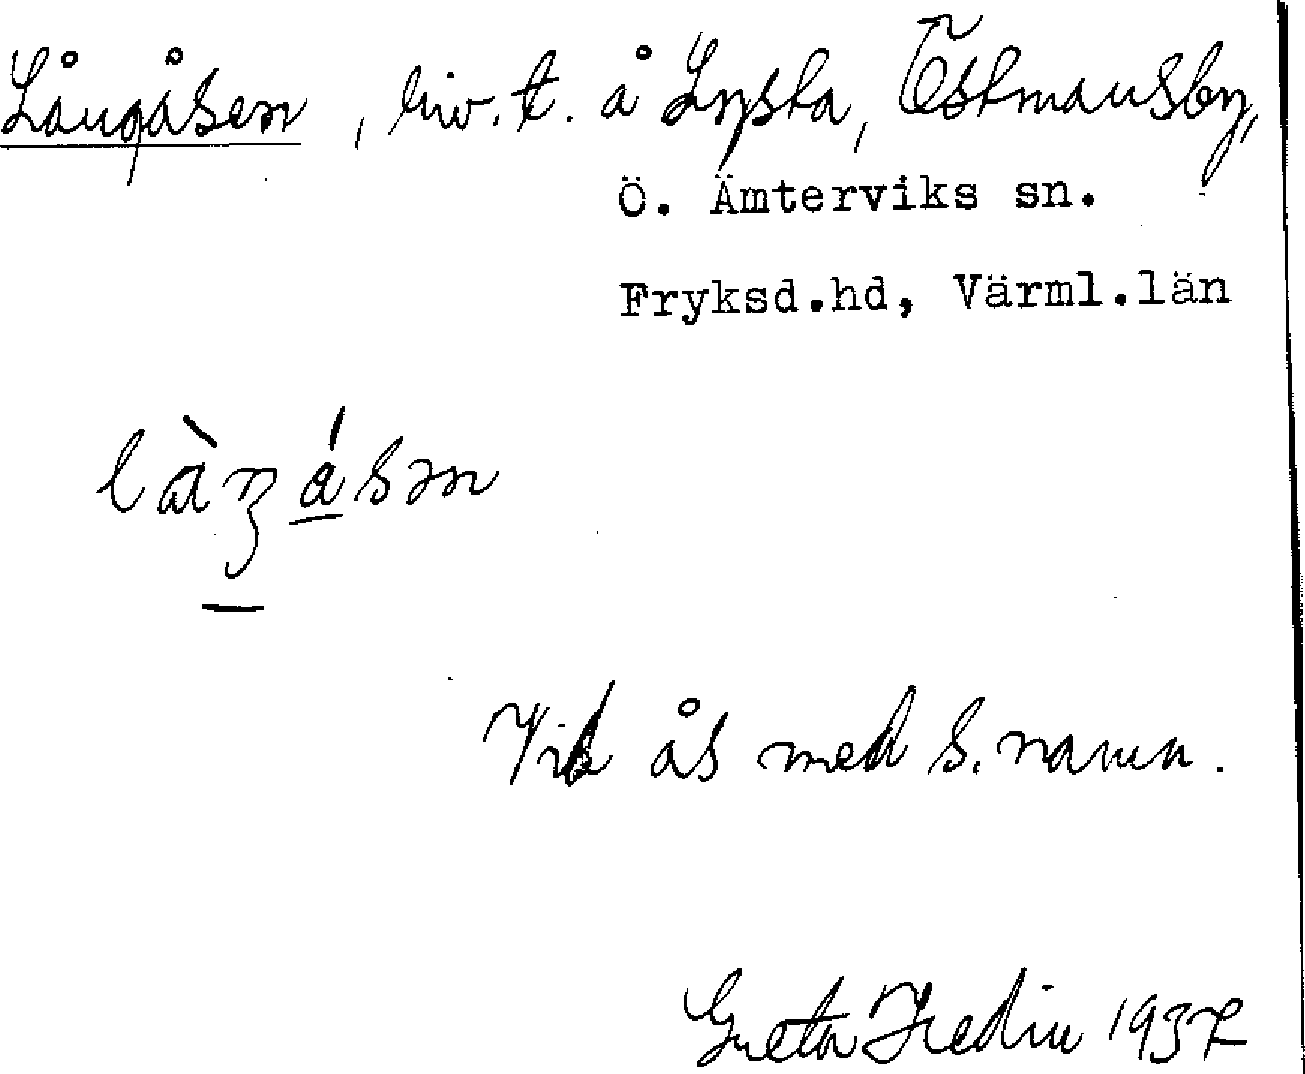 Långåsen, liv.t. å Lysta, Östmansby,
Ö. Ämterviks sn.
Fryksd.hd, Värml.län
Vid ås med s. namn.
Greta Hedin 1937